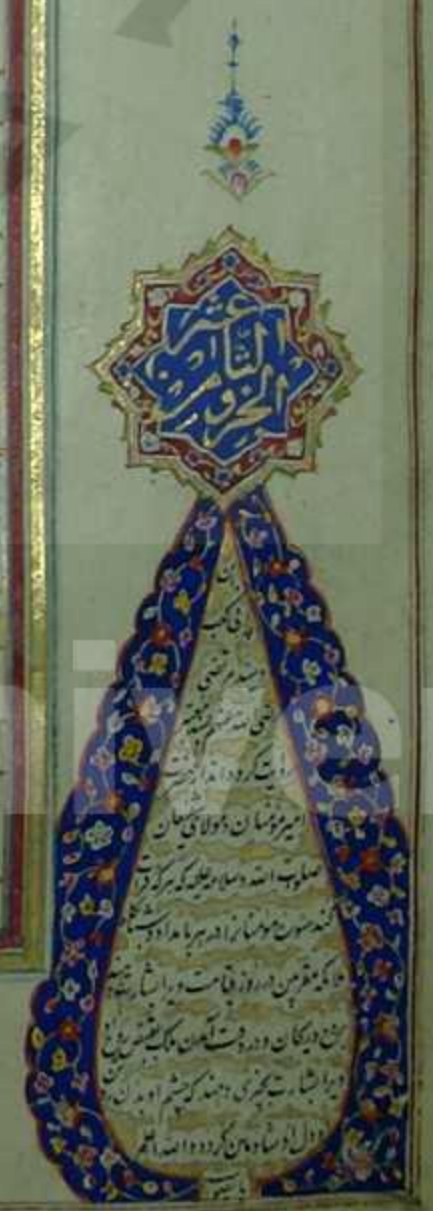 الجزو الثامن عشر
کعب
و سید مرتضی
رضی الله عنهم
روایت کرده اند از حضرت
امیر مؤمنان و مولای
صلوات الله و سلامه علیه که هر که قرائت
کند سوره مومنانرا در هر بامداد و
ملائکه مقربین در روز قیامت ویرا بشارت
بروح و ریحان و در وقت آمدن ملک بقبض روح
ویرا بشارت بچیزی دهند که چشم او بدان
و دل او شادمان گردد و الله اعلم
بالصواب
niver